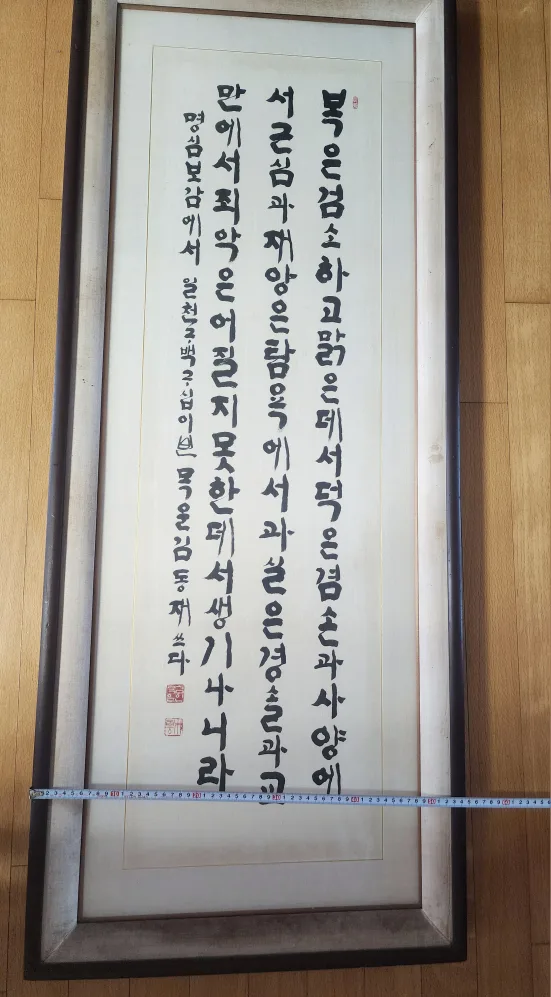 복은검소하고맑은데서덕은겸손과사양에
서근심과재앙은탐욕에서과실은경솔과교
만에서죄악은어질지못한데서생기나니라
명심보감에서 일천구백구십이년 김동재쓰다